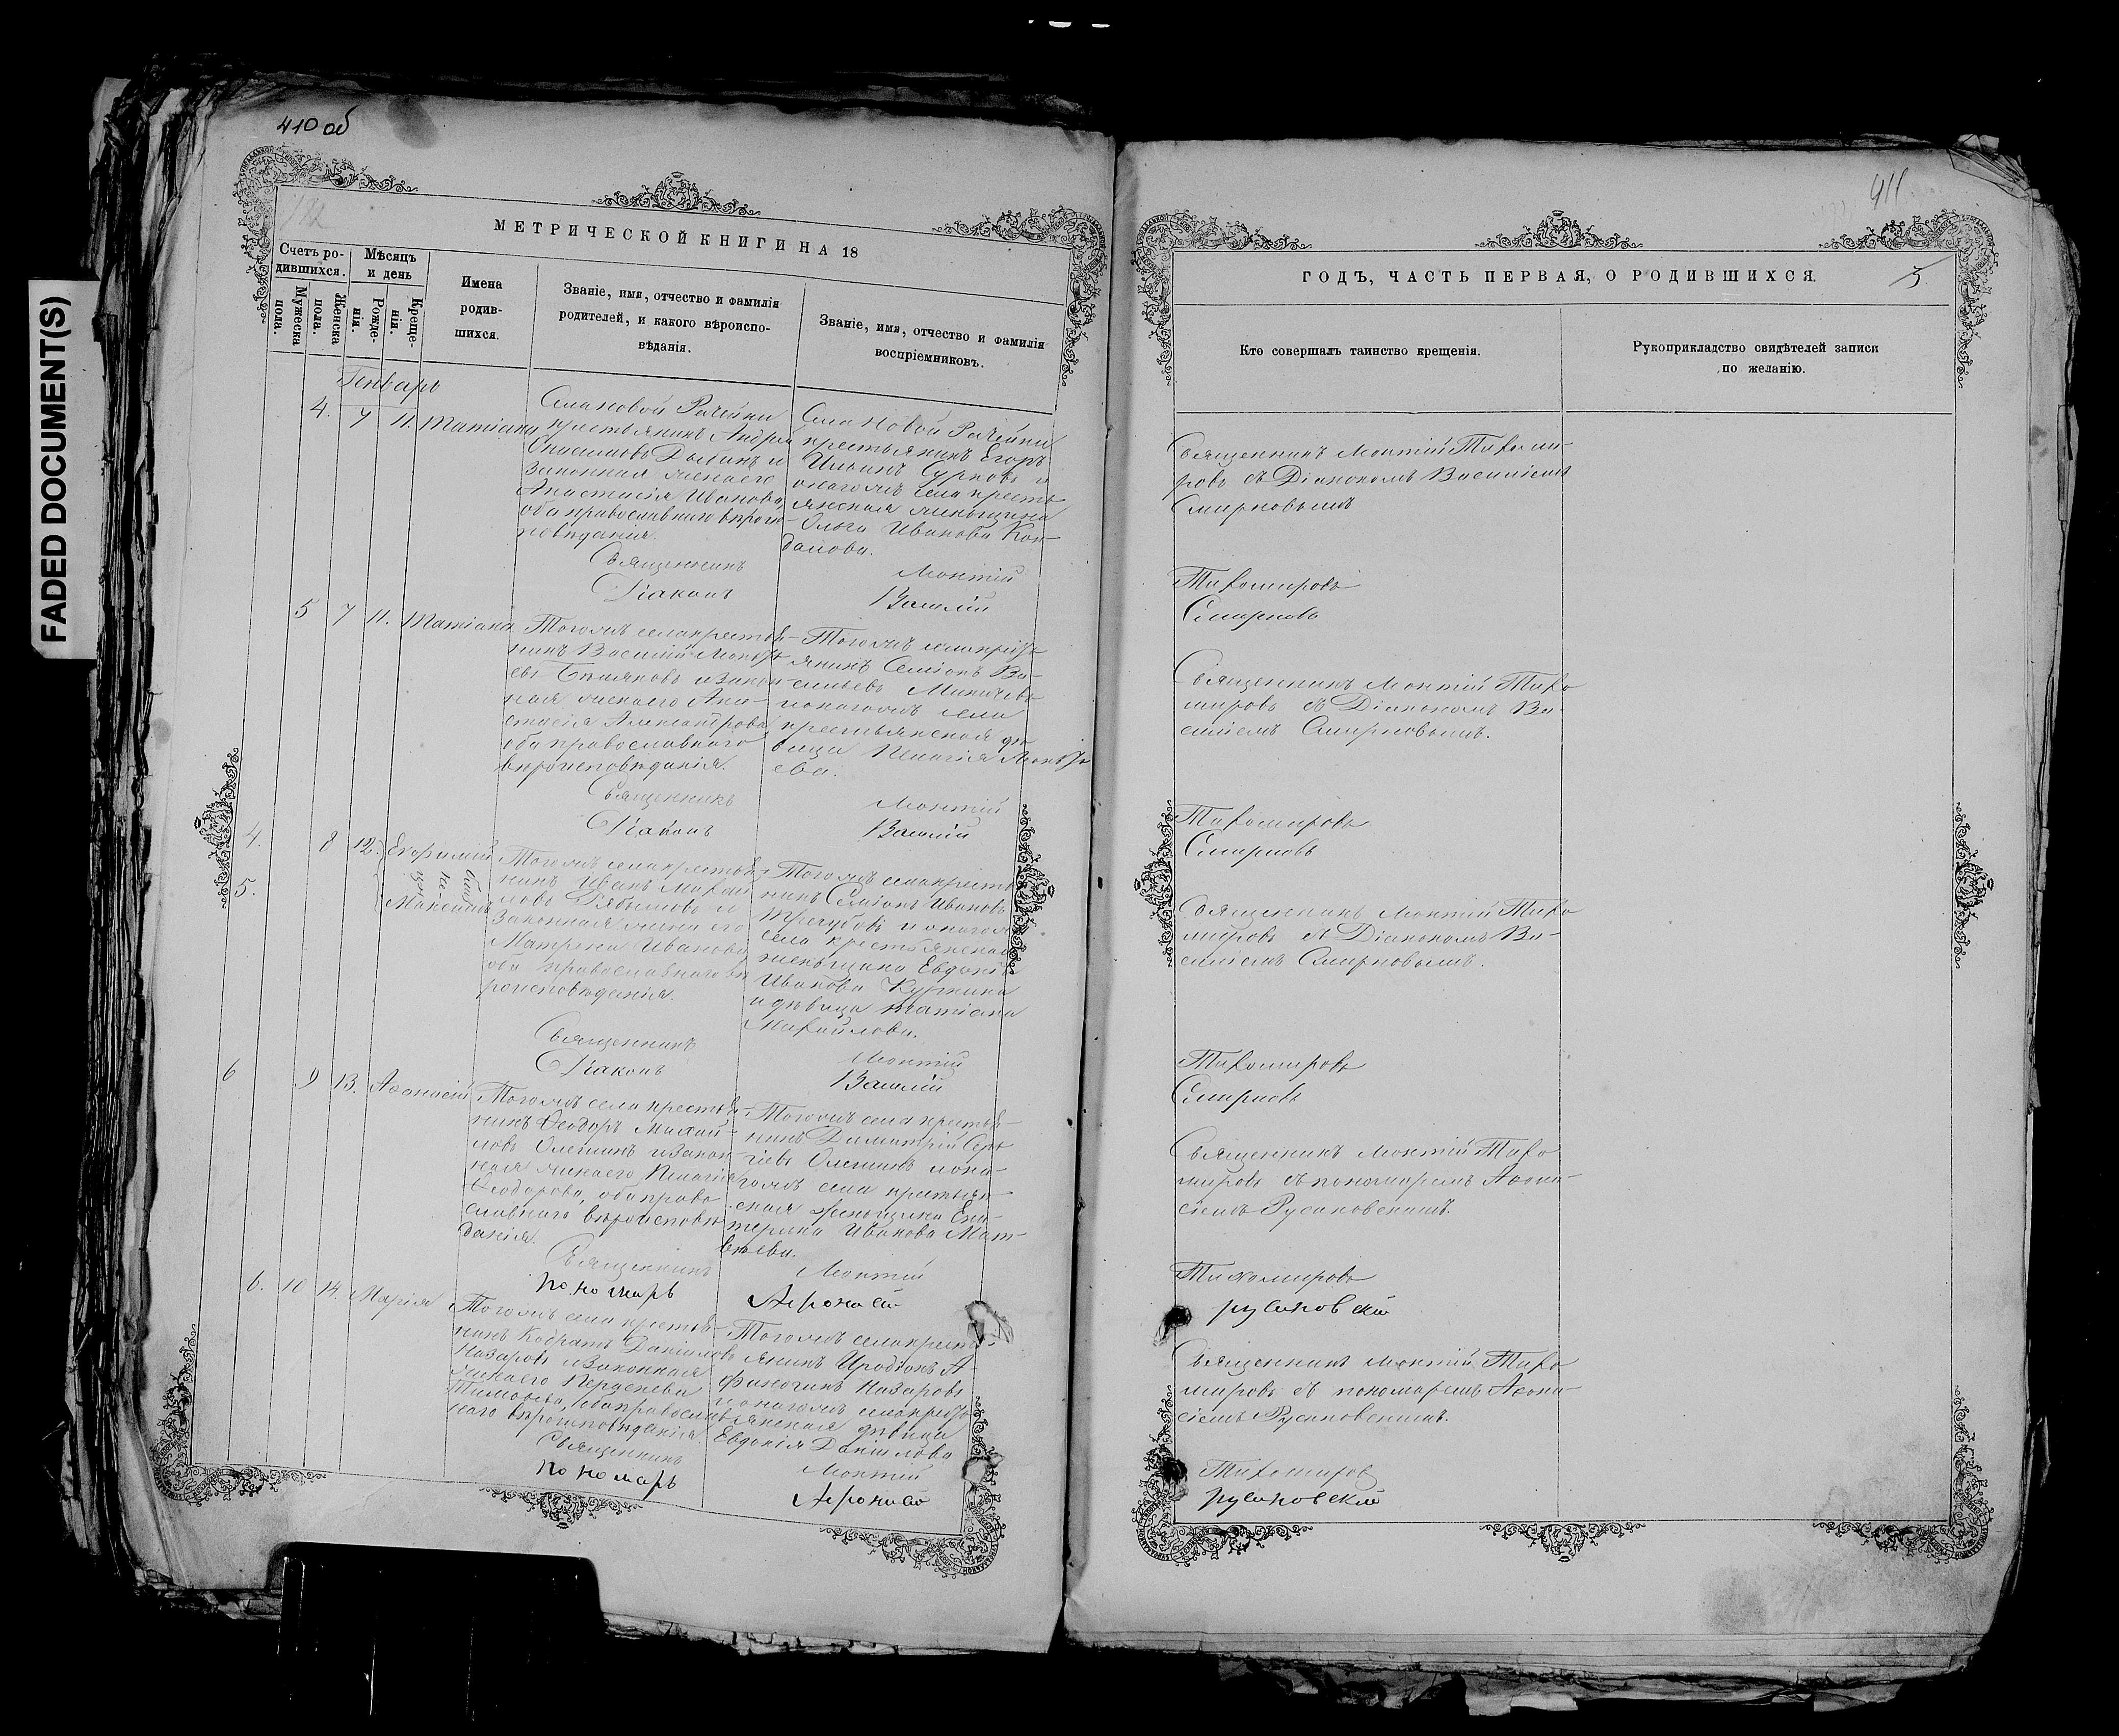 FADED DOCUMENT(S)
410 об
МЕТРИЧЕСКОЙ КНИГИ НА 18
Счетъ родившихся.
Мужеска пола.
Женска пола.
Мѣсяцъ и день
Рожденія.
Крещенія.
Имена родившихся.
Званіе, имя, отчество и фамилія
родителей, и какого вѣроиспо-
вѣданія.
Званіе, имя, отчество и фамилія
воспріемниковъ.
Генварь
4. 7 11. Татіана
Села Новой Рачейки
крестьянинъ Андрей
законная жена его
Анастасія Иванова,
оба православнаго вѣроис-
повѣданія.
Села Новой Рачейки
крестьянинъ Егоръ
Ильинъ Сурковъ и
онагожъ села кресть-
янская женьщина
Ольга Иванова Кон-
Священникъ Монтій
Діаконъ Василій
5 7 11. Татіана
Тогожъ села крестья-
нинъ Василій
и закон-
ная жена его Ана-
стасія Александрова,
оба православнаго
вѣроисповѣданія.
Тогожъ села кресть-
янинъ Семіонъ Ва-
сильевъ
и онагожъ села
крестьянская дѣ-
вица Пелагія
ева.
Священникъ Монтій
Діаконъ Василій
4. 8 12. Евфимій
5. Максимъ
близ
не
цы
Тогожъ села крестья-
нинъ Иванъ Михай-
ловъ и
законная жена его
Матрена Иванова,
оба православнаго вѣ-
роисповѣданія.
Тогожъ села крестья-
нинъ Семіонъ Ивановъ
Трегубовъ и онагожъ
села крестьянская
женьщина Евдокія
Иванова
и дѣвица Татіана
Михайлова.
Священникъ Монтій
Діаконъ Василій
6 9 13. Аѳанасій
Тогожъ села крестья-
нинъ Ѳеодоръ Михай-
ловъ Олешинъ и закон-
ная жена его Пелагія
Ѳеодорова, оба право-
славнаго вѣроисповѣ-
данія.
Тогожъ села крестья-
нинъ Димитрій Сер-
гіевъ Олешинъ и она-
гожъ села крестьян-
ская женьщина Ека-
терина Иванова Мат-
вѣева.
Священникъ Монтій
пономарь Афонасій
6. 10 14. Марія
Тогожъ села крестья-
нинъ Кодратъ Даніиловъ
Назаровъ и законная
жена его
Тимоѳеева, оба православ-
наго вѣроисповѣданія.
Тогожъ села кресть-
янинъ Иродіонъ А-
финогинъ Назаровъ
и онагожъ села кресть-
янская дѣвица
Евдокія Даніилова
Священникъ Монтій
пономарь Афонасій
411
ГОДЪ, ЧАСТЬ ПЕРВАЯ, О РОДИВШИХСЯ.
Кто совершалъ таинство крещенія.
Рукоприкладство свидѣтелей записи
по желанію.
Священникъ Монтій Тихоми-
ровъ съ Діакономъ Василіемъ
Смирновымъ
Тихомировъ
Смирновъ
Священникъ Монтій Тихо
мировъ съ Діакономъ Ва-
силіемъ Смирновымъ.
Тихомировъ
Смирновъ
Священникъ Монтій Тихо
мировъ съ Діакономъ Ва-
силіемъ Смирновымъ.
Тихомировъ
Смирновъ
Священникъ Монтій Тихо
мировъ съ пономаремъ Аѳана-
сіемъ Русановскимъ.
Тихомировъ
русановскій
Священникъ Монтій Тихо
мировъ съ пономаремъ Аѳана-
сіемъ Русановскимъ.
Тихомировъ
русановскій